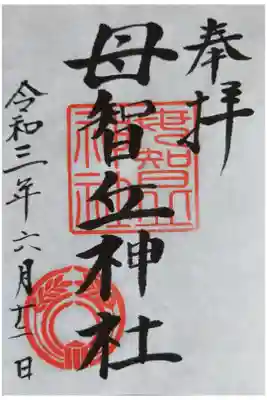 奉拝
母智丘神社
母智丘神社
令和三年六月 日